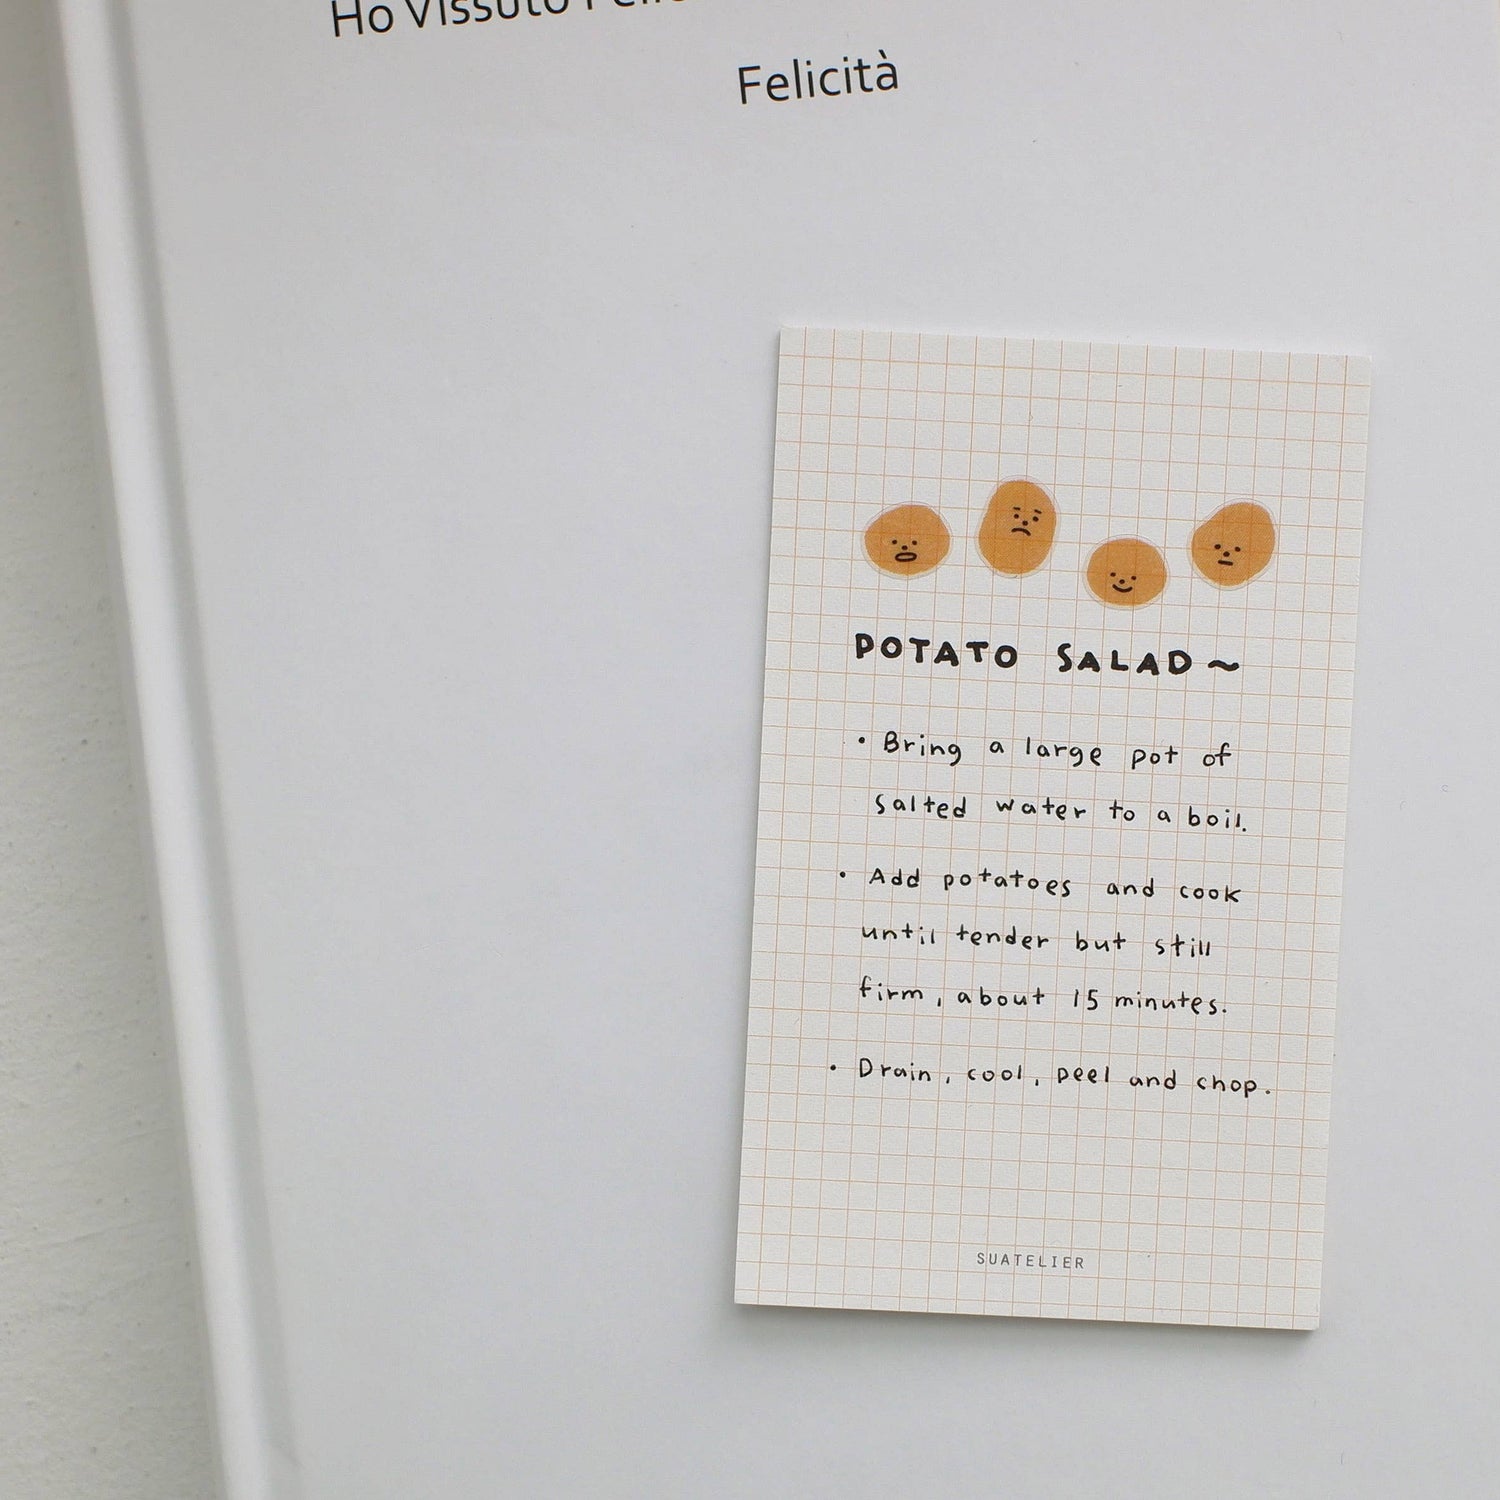 Ho Vissuto
Felicità
POTATO SALAD~
• Bring a large pot of
salted water to a boil.
• Add potatoes and cook
until tender but still
firm, about 15 minutes.
• Drain, cool, peel and chop.
SUATELIER